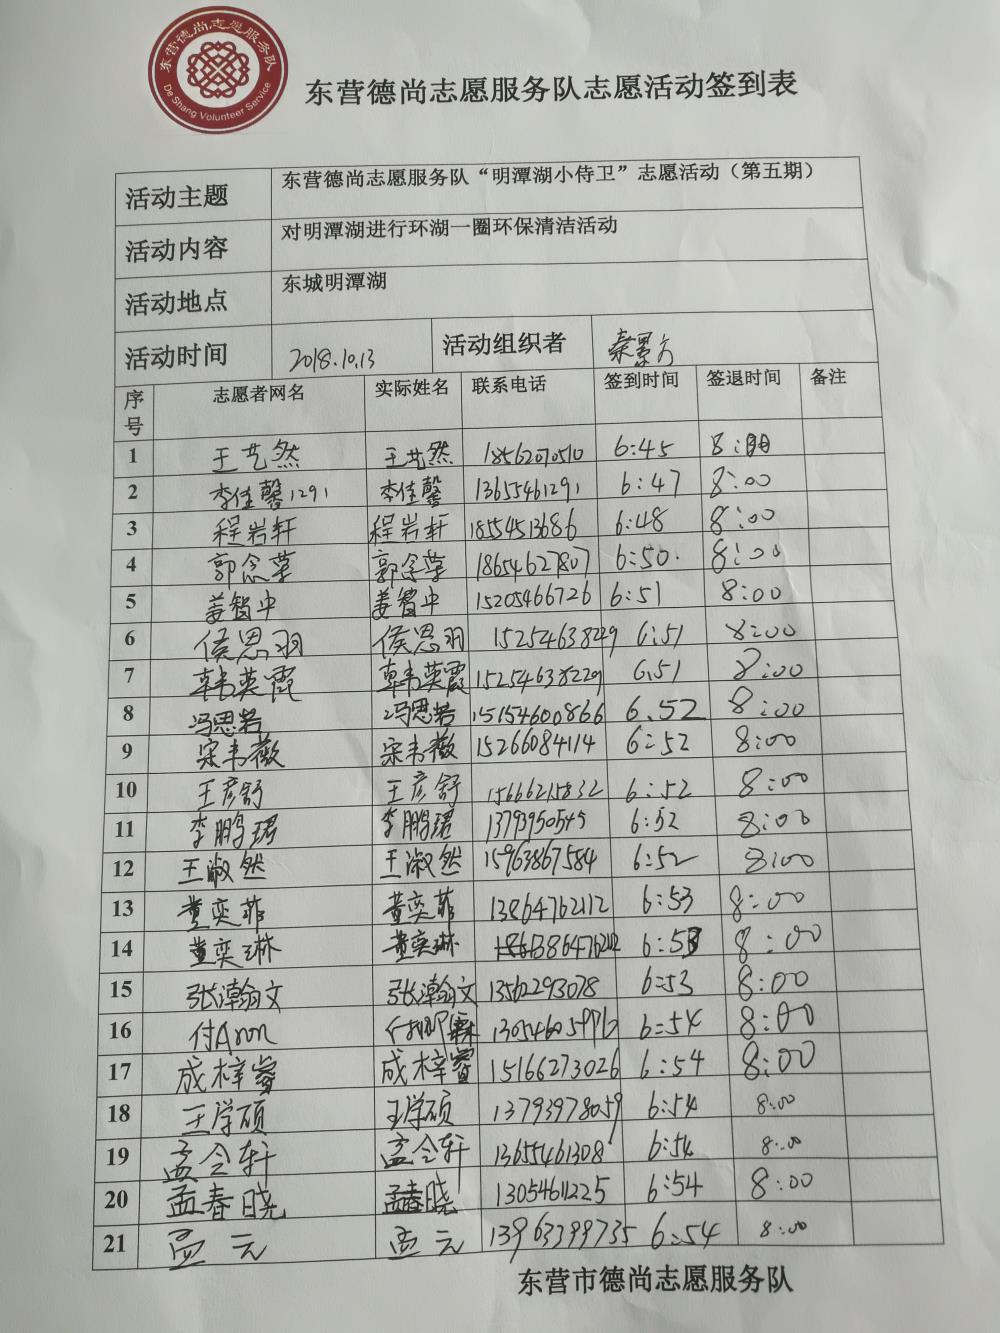 东营德尚志愿服务队
De Shang Volunteer Service
东营德尚志愿服务队志愿活动签到表
活动主题 东营德尚志愿服务队“明潭湖小侍卫”志愿活动（第五期）
活动内容 对明潭湖进行环湖一圈环保清洁活动
活动地点 东城明潭湖
活动时间 2018.10.13 活动组织者 秦景方
序号 志愿者网名 实际姓名 联系电话 签到时间 签退时间 备注
1 王艺然 王艺然 18562070510 6:45 8:00
2 李佳馨1291 李佳馨 13655461291 6:47 8:00
3 程岩轩 程岩轩 18554513686 6:48 8:00
4 郭念荣 郭念荣 18654627807 6:50. 8:00
5 姜智中 姜智中 15205466726 6:51 8:00
6 侯思羽 侯思羽 15254638249 6:51 8:00
7 韩英霞 韩英霞 15254638229 6.51 8:00
8 冯思若 冯思若 15154600866 6.52 8:00
9 宋韦薇 宋韦薇 15266084114 6:52 8:00
10 王彦舒 王彦舒 15666215832 6:52 8:00
11 李鹏珺 李鹏珺 13793950545 6:52 8:00
12 王淑然 王淑然 15963867584 6:52 8:00
13 董奕菲 董奕菲 13864762112 6:53 8:00
14 董奕琳 董奕琳 6:53 8:00
15 张瀚文 张瀚文 13562293078 6:53 8:00
16 付Aron 13054605976 6:54 8:00
17 成梓睿 成梓睿 15166273026 6:54 8:00
18 王学硕 王学硕 13793978059 6:54 8:00
19 孟令轩 孟令轩 13655461308 6:54 8:00
20 孟春晓 孟春晓 13054611225 6:54 8:00
21 孟元 孟元 13963399735 6:54 8:00
东营市德尚志愿服务队